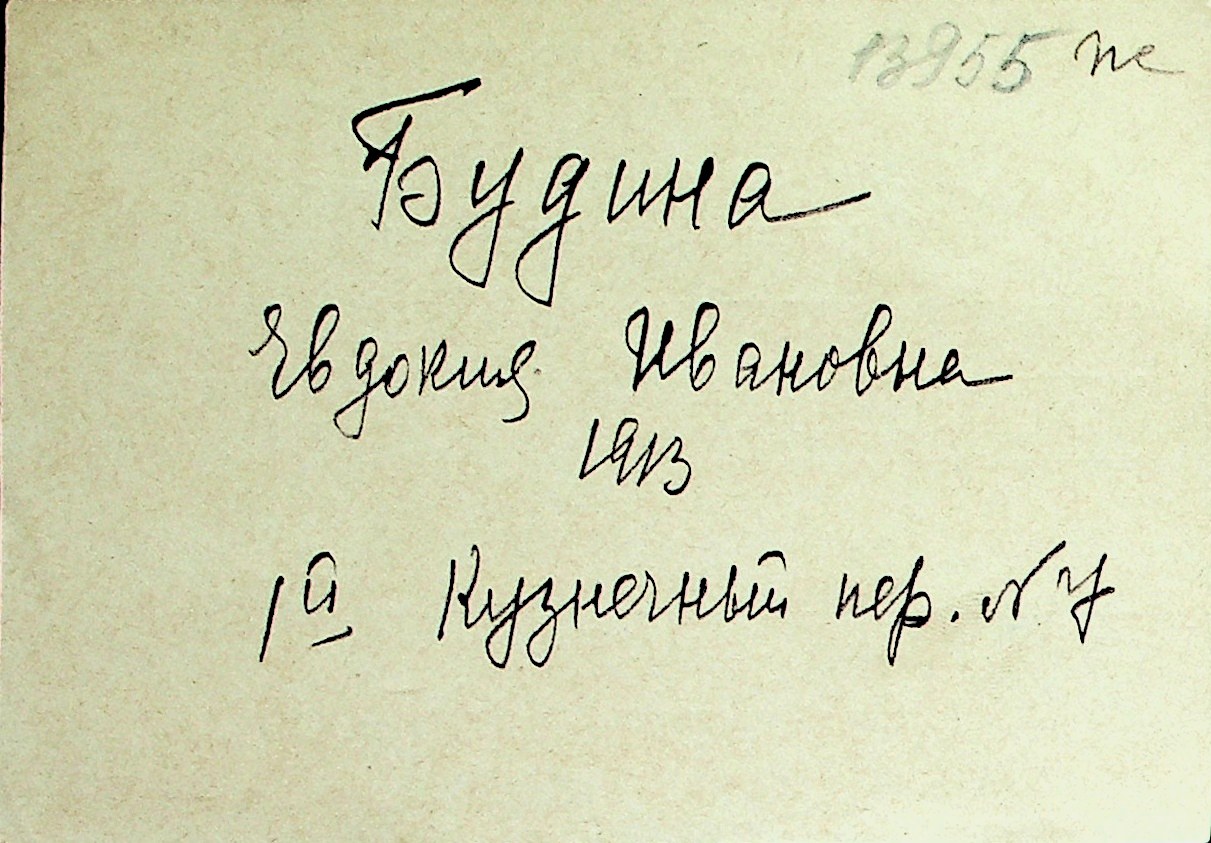 13955 пе
Будина
Евдокия Ивановна
1913
1й Кузнечный пер. №